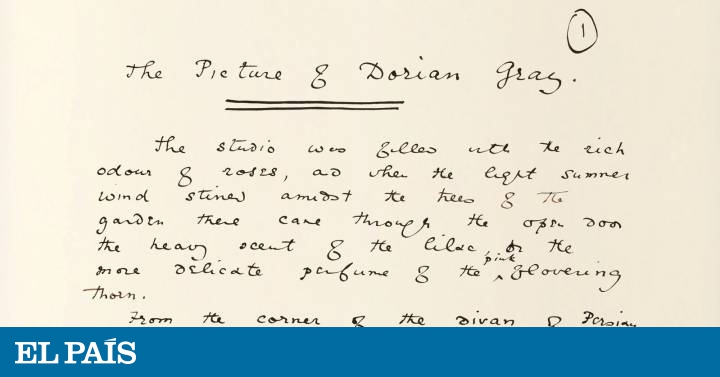 1
The Picture of Dorian Gray.
The studio was filled with the rich
odour of roses, and when the light summer
wind stirred amidst the trees of the
garden there came through the open door
the heavy scent of the lilac, or the
more delicate perfume of the pink flowering
thorn.
From the corner of the divan of Persian
EL PAÍS